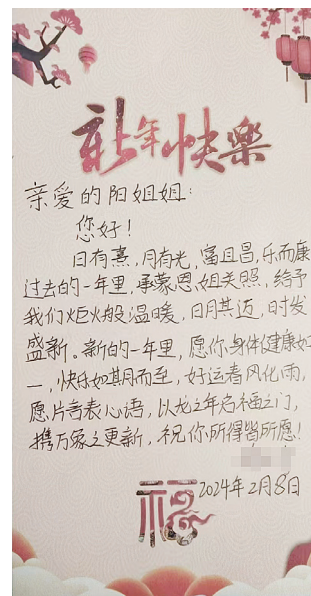 新年快樂
亲爱的阳姐姐:
您好!
日有熹,月有光,富且昌,乐而康
过去的一年里,承蒙恩姐关照,给予
我们炬火般温暖,日月其迈,时发
盛新。新的一年里,愿你身体健康如
一,快乐如期而至,好运春风化雨,
愿片言表心语,以龙之年启福之门,
携万象之更新,祝你所得皆所愿!
2024年2月8日
福